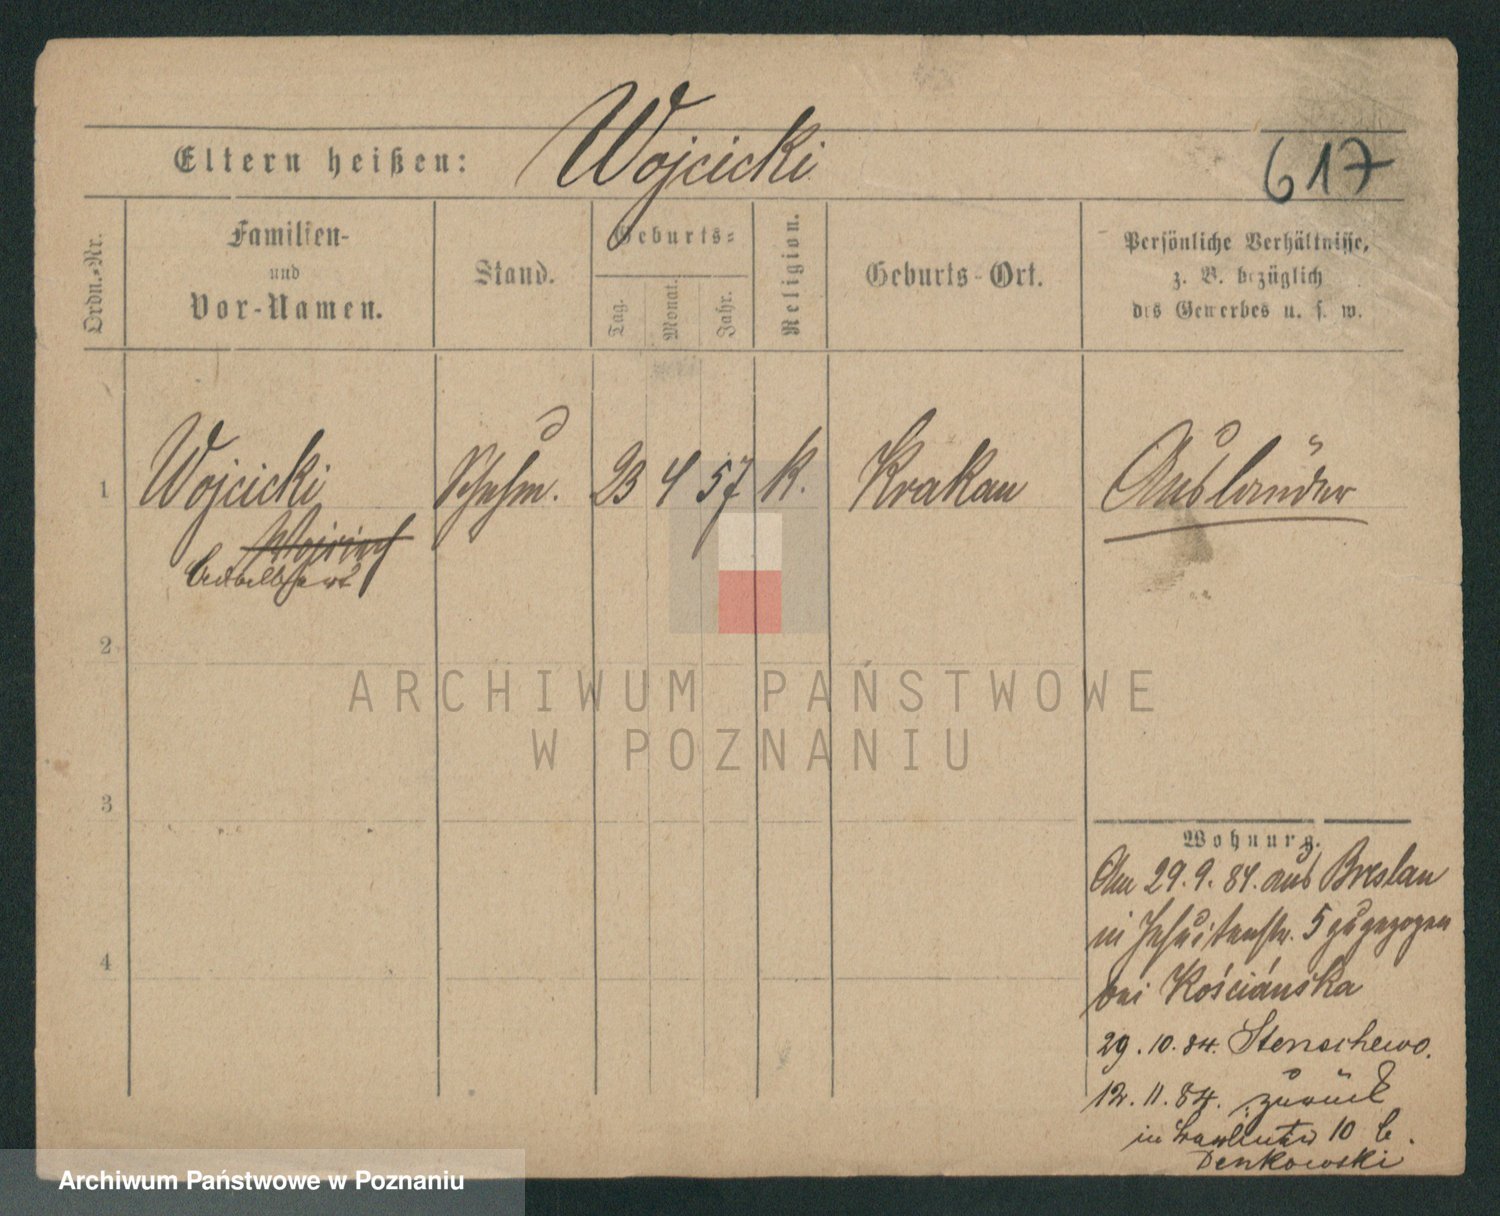 Wojcicki
Eltern heißen:
617
Ordn.-Nr.
Familien-
und
Vor-Namen.
Stand.
Geburts-
Tag.
Monat.
Jahr.
Religion.
Geburts-Ort.
Persönliche Verhältnisse,
z. B. bezüglich
des Gewerbes u. s. w.
1 Wojcicki Schuhm. 23 4 57 K. Krakau Ausländer
Adalbert
2
3
4
Wohnung.
Am 29.9.84. aus Breslau
in Jesuitenstr. 5 zugezogen
bei Kościańska
29.10.84. Stenschewo.
12.11.84. zurück
in 10 b.
Denkowski
ARCHIWUM PAŃSTWOWE
W POZNANIU
Archiwum Państwowe w Poznaniu